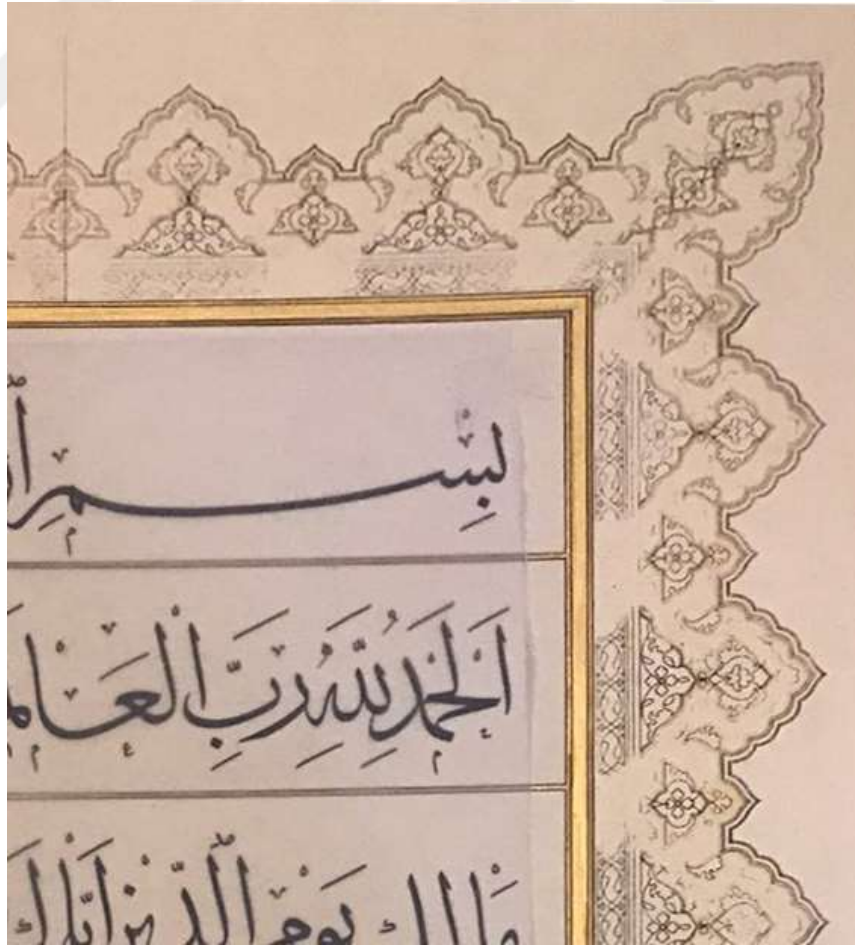 بِسْمِ
اَلْحَمْدُ لِلّٰهِ رَبِّ الْعَالَمِ
مَالِكِ يَوْمِ الدِّينِ اِيَّاكَ